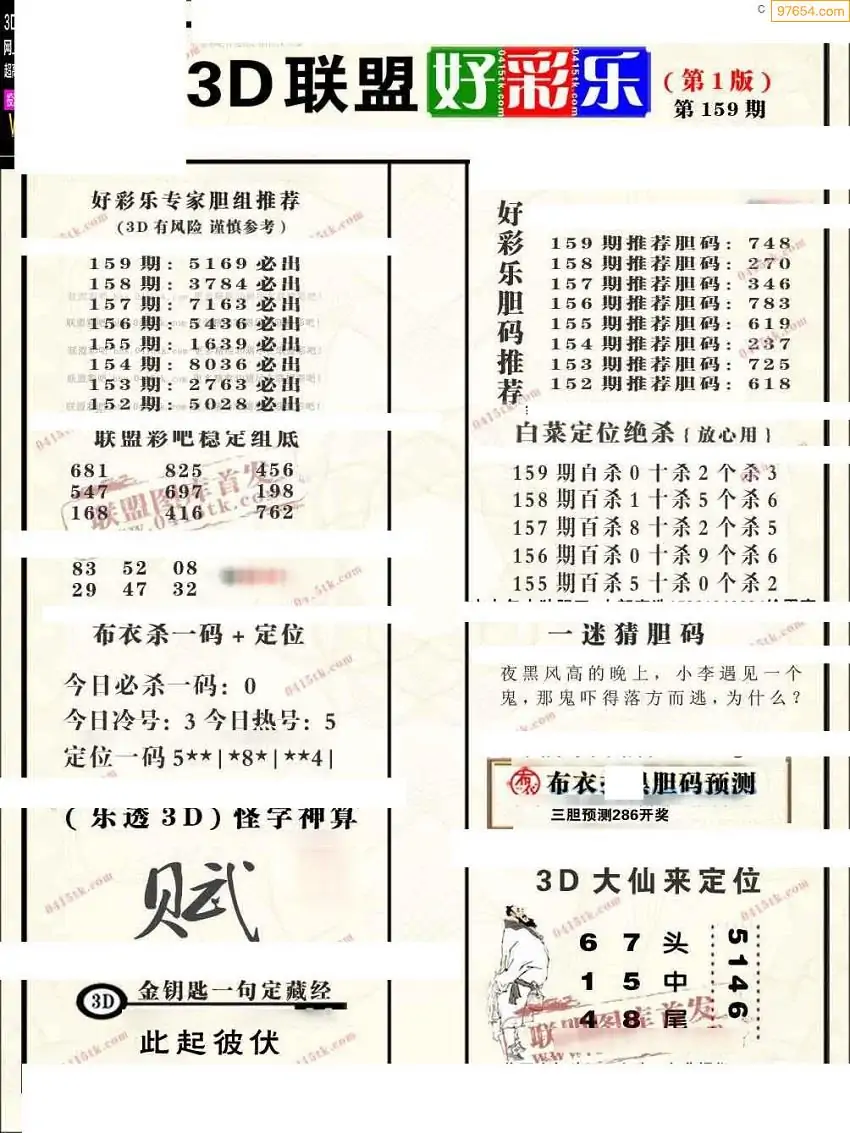 97654.com
3D联盟好彩乐(第1版)
第159期
好彩乐专家胆组推荐
(3D有风险 谨慎参考)
159期: 5169必出
158期: 3784必出
157期: 7163必出
156期: 5436必出
155期: 1639必出
154期: 8036必出
153期: 2763必出
152期: 5028必出
联盟彩吧稳定组底
681 825 456
547 697 198
168 416 762
83 52 08
29 47 32
布衣杀一码+定位
今日必杀一码: 0
今日冷号: 3 今日热号: 5
定位一码 5**|*8*|**4|
(乐透3D)怪字神算
赋
3D 金钥匙一句定藏经
此起彼伏
好彩乐胆码推荐
159期推荐胆码: 748
158期推荐胆码: 270
157期推荐胆码: 346
156期推荐胆码: 783
155期推荐胆码: 619
154期推荐胆码: 237
153期推荐胆码: 725
152期推荐胆码: 618
白菜定位绝杀{放心用}
159期百杀0十杀2个杀3
158期百杀1十杀5个杀6
157期百杀8十杀2个杀5
156期百杀0十杀9个杀6
155期百杀5十杀0个杀2
一迷猜胆码
夜黑风高的晚上,小李遇见一个
鬼,那鬼吓得落方而逃,为什么?
布衣 胆码预测
三胆预测286开奖
3D大仙来定位
6 7 头
1 5 中
4 8 尾
5146
联盟图库首发
www.0415tk.com
0415tk.com